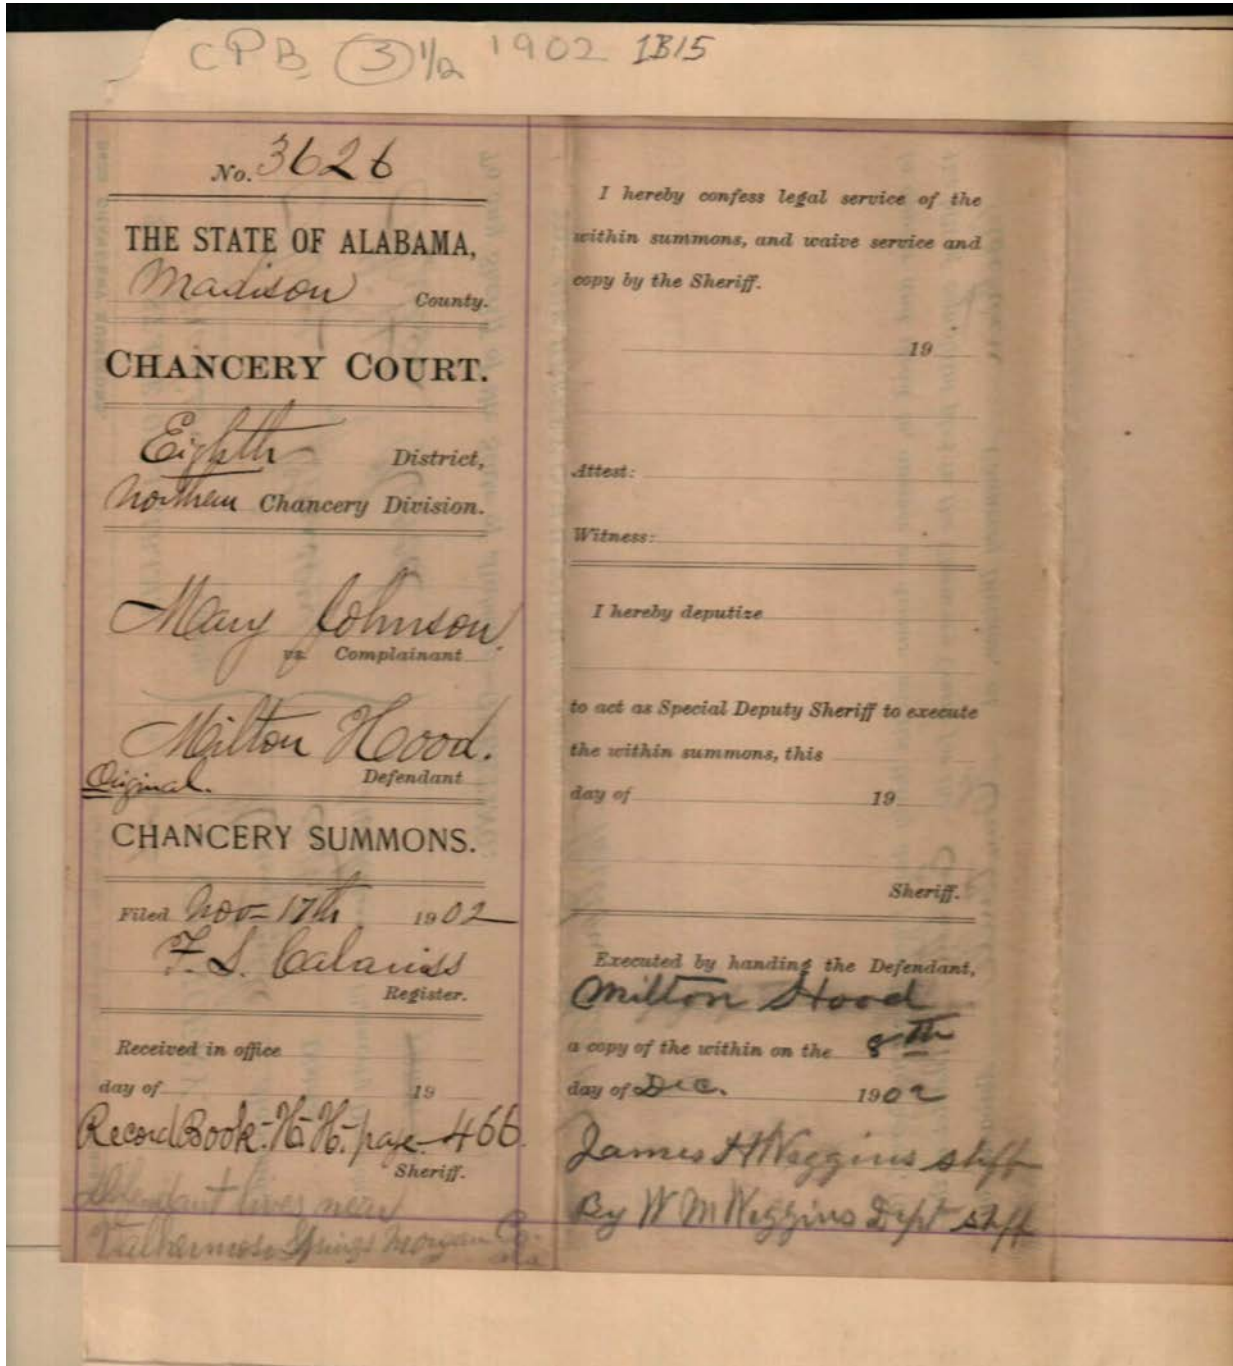 CPB (3) 1/2 1902 IB15
No. 3626
THE STATE OF ALABAMA,
Madison County.
CHANCERY COURT.
Eighth District,
Northern Chancery Division.
Mary Johnson
vs. Complainant
Milton Hood.
Original. Defendant
CHANCERY SUMMONS.
Filed Nov- 17th 1902
F. S.
Register.
Received in office
day of 19
Record Book- H- H- page- 466
Sheriff.
Defendant lives near
Valhermoso Springs Morgan Co.
Ala.
I hereby confess legal service of the
within summons, and waive service and
copy by the Sheriff.
19
Attest:
Witness:
I hereby deputize
to act as Special Deputy Sheriff to execute
the within summons, this
day of 19
Sheriff.
Executed by handing the Defendant,
Milton Hood
a copy of the within on the 8th
day of Dec. 1902
James H Wiggins shff
By W M Wiggins Dept shff